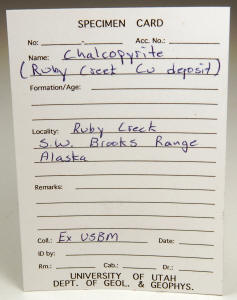 SPECIMEN CARD
No: - Acc. No.:
Name: Chalcopyrite
(Ruby Creek Cu deposit)
Formation/Age:
Locality: Ruby Creek
S.W. Brooks Range
Alaska
Remarks:
Coll.: Ex USBM Date:
ID by:
Rm.: Cab.: Dr.:
UNIVERSITY OF UTAH
DEPT. OF GEOL. & GEOPHYS.